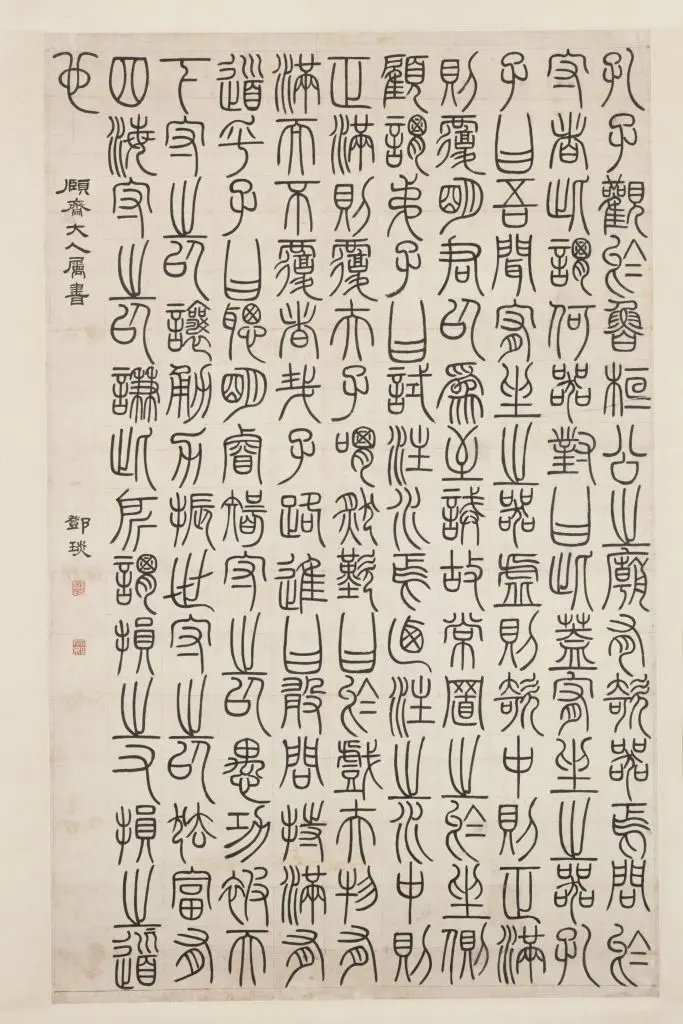 孔子觀於魯桓公之廟有欹器焉問於
守者此謂何器對曰此蓋宥坐之器孔
子曰吾聞宥坐之器虛則欹中則正滿
則覆明君以爲至誡故常置之於坐側
顧謂弟子曰試注水焉迺注之水中則
正滿則覆夫子喟然歎曰於戲夫物有
滿而不覆者哉子路進曰敢問持滿有
道乎子曰聰明睿智守之以愚功被天
下守之以讓勇力振世守之以怯富有
四海守之以謙此所謂損之又損之道
也
頤齋大人屬書
鄧琰